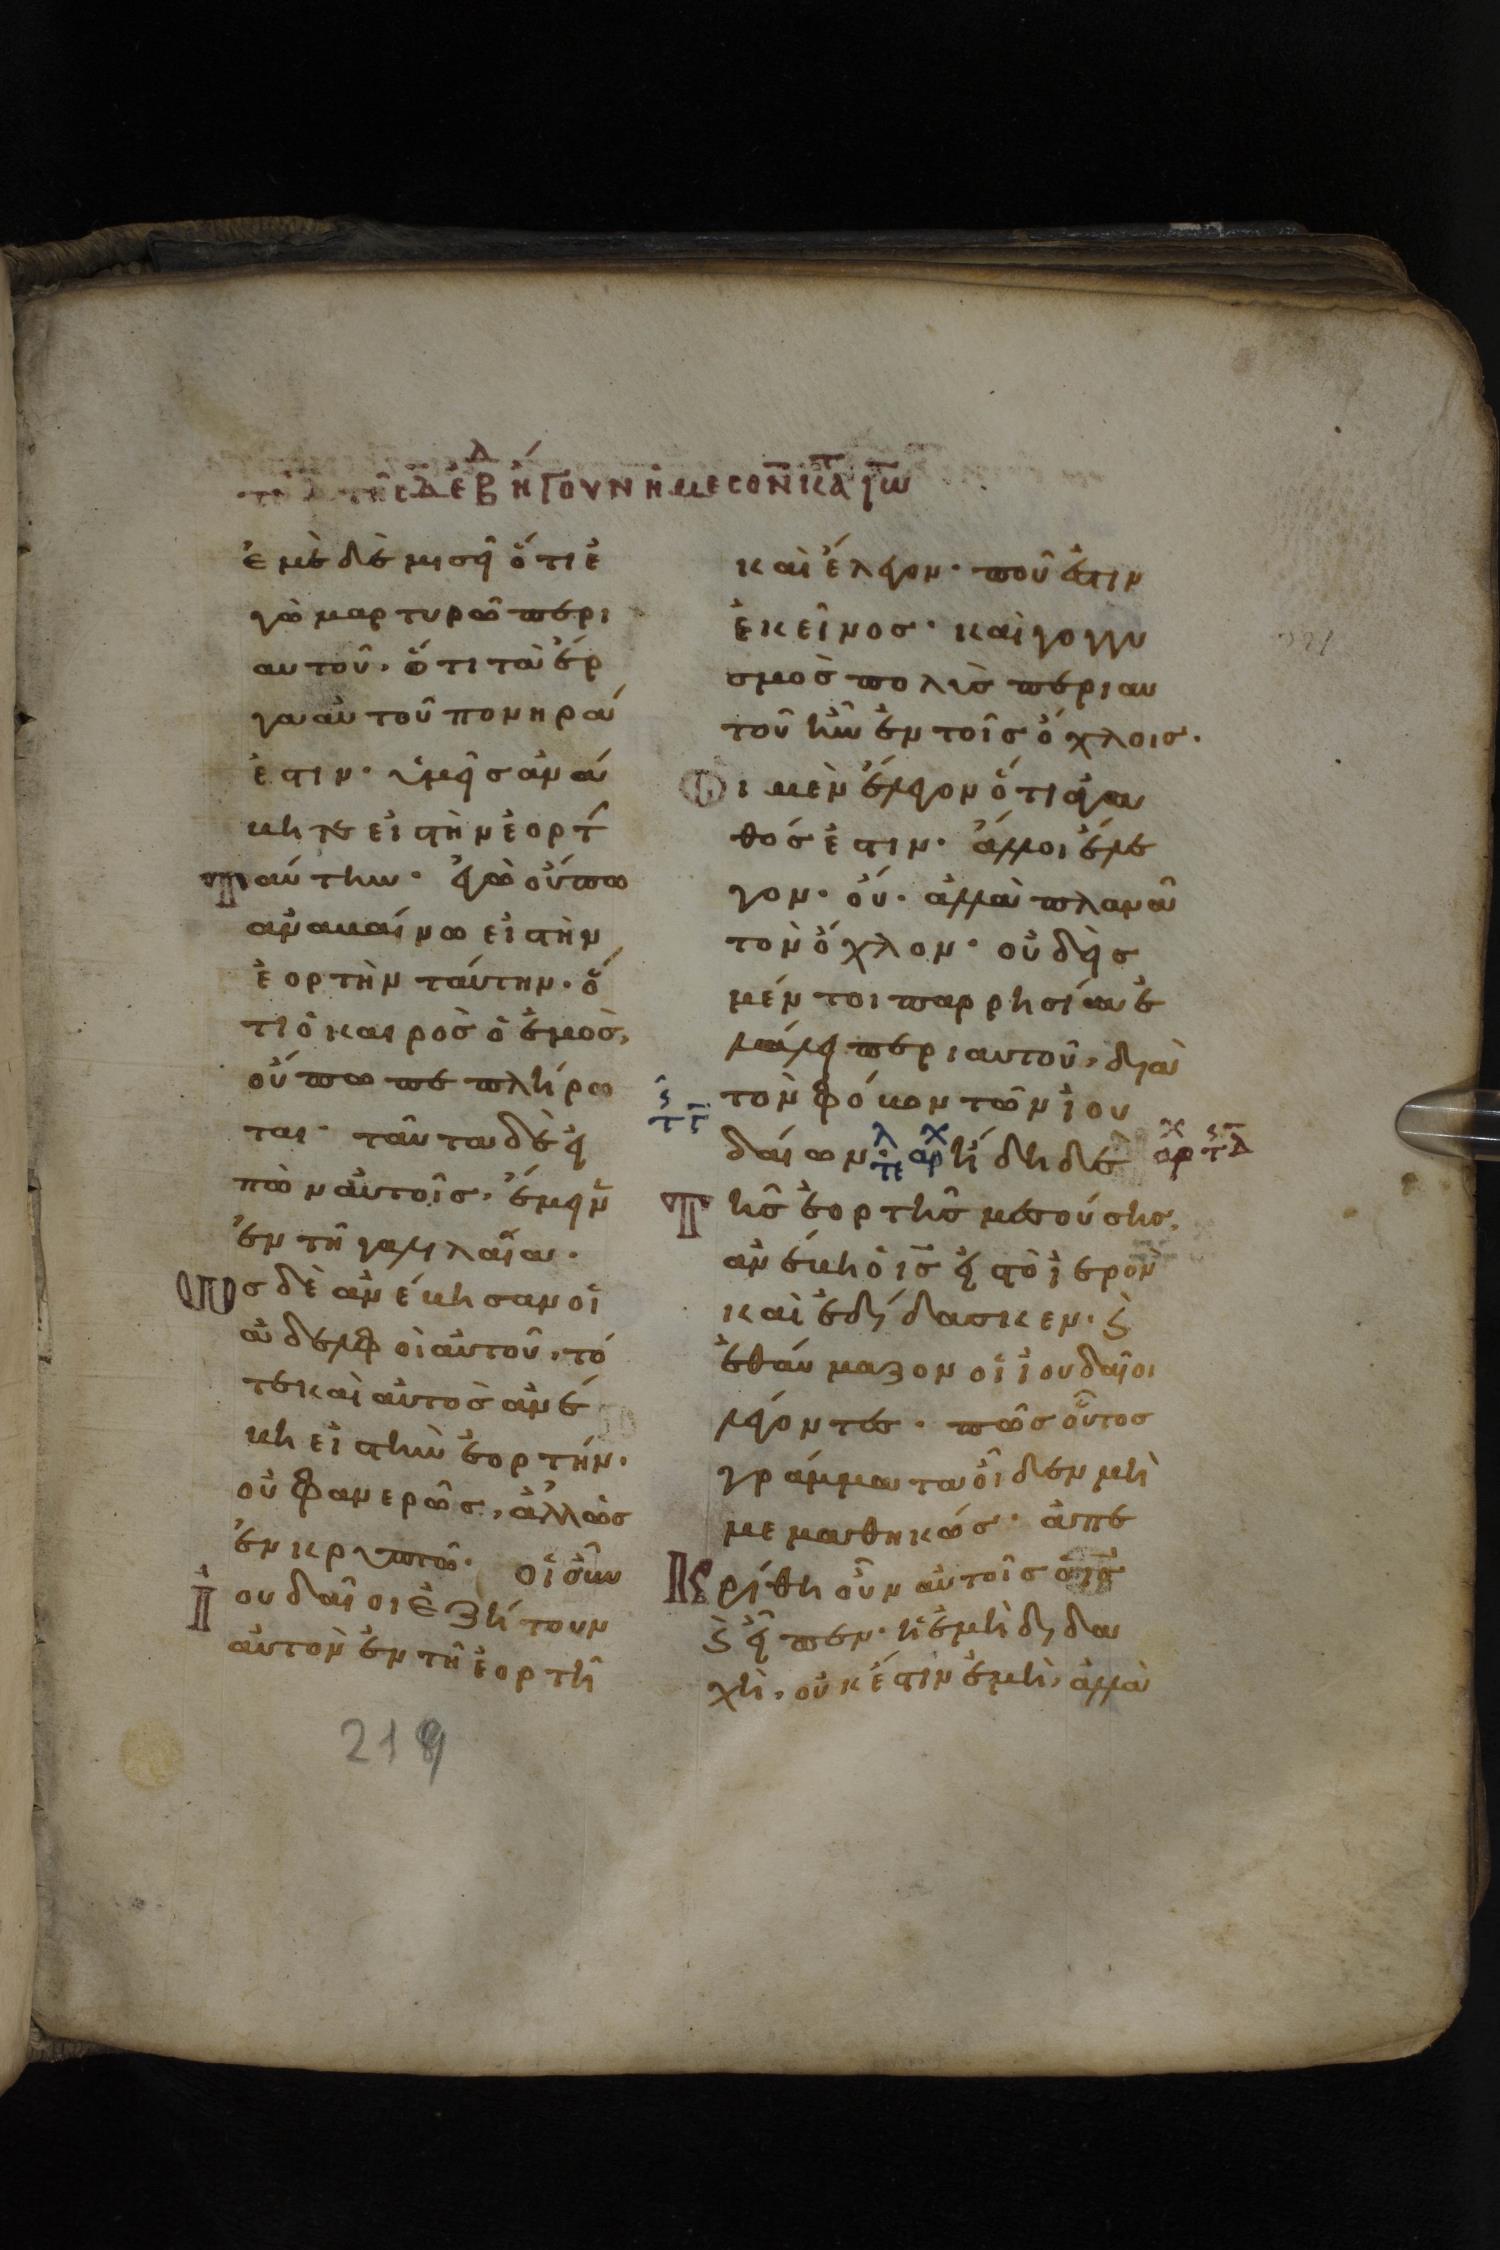 τῆ δ τῆς δ ἑβδ ἤγουν ἡ μεσον κατ ιω
ἐμὲ δὲ μισεῖ ὅτι ἐ
γὼ μαρτυρῶ περι
αυτοῦ· ὅτι τὰ ἔρ
γα αὐτοῦ πονηρά
ἐστιν· ὑμεῖς ἀνά
βητε εἰς τὴν ἑορτ
αύτην· ἐγὼ οὔπω
αναβαίνω εἰς τὴν
ἑορτὴν ταύτην· ὅ
τι ὁ καιρὸσ ὁ ἐμὸσ,
οὔπω πεπλήρω
ται· ταῦτα δὲ εἰ
πὼν αὐτοῖσ, ἔμεινεν
ἐν τῆ γαλιλαῖαι·
Ως δὲ ἀνέβησαν οἱ
ἀδελφοὶ αὐτοῦ, τό
τε καὶ αὐτὸσ ἀνέ
βη εἰς τὴν ἑορτήν·
οὐ φανερῶσ, ἀλλ ὡσ
ἐν κρυπτῶ· οἱ οὖν
Ἰουδαῖοι ἐζήτουν
αὐτὸν ἐν τῆ ἑορτῆ
καὶ ἔλεγον· ποῦ ἐστιν
ἐκεῖνοσ· καὶ γογγυ
σμὸσ πολὺσ περι αυ
τοῦ ἦν ἐν τοῖσ ὄχλοισ·
Οι μὲν ἔλεγον ὅτι ἀγα
θόσ ἐστιν· ἄλλοι ἔλε
γον· οὔ· ἀλλὰ πλανᾶ
τὸν ὄχλον· οὐδεὶσ
μέντοι παρρησία ἐ
λάλει περι αυτοῦ, διὰ
τὸν φόβον τῶν ἰου
δαίων· τελ αρχ ἤδη δὲ αρχ
Τῆσ ἑορτῆσ μεσούσησ,
ἀνέβη ὁ ισ εἰσ τὸ ἱερὸν
καὶ ἐδίδασκεν· ϗ
ἐθαύμαζον οἱ ἰουδαῖοι
λέγοντεσ· πῶσ οὗτοσ
γράμματα οἶδεν μὴ
μεμαθηκώσ· ἀπε
Κρίθη οὖν αὐτοῖσ ὁ ισ
ϗ εἶπεν· ἡ ἐμὴ διδα
χὴ, οὐκ ἔστιν ἐμὴ, ἀλλὰ
219